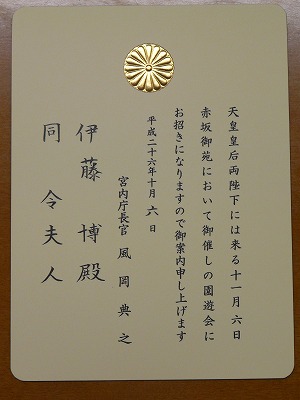 天皇皇后両陛下には来る十一月六日
赤坂御苑において御催しの園遊会に
お招きになりますので御案内申し上げます
平成二十六年十月六日
宮内庁長官 風岡典之
伊藤博殿
同令夫人